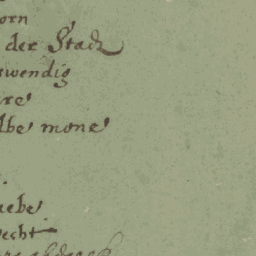 orn
der Stadt
swendig
re
lbe mone
iebe
echt